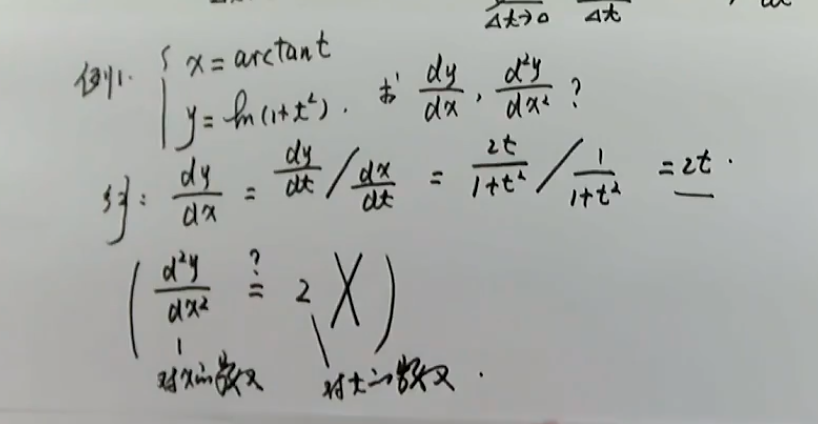 Δt→0 Δt
例1. { x = arctant
y = ln(1+t²). 求 dy/dx, d²y/dx² ?
解: dy/dx = dy/dt / dx/dt = 2t/1+t² / 1/1+t² = 2t.
( d²y/dx² ?= 2 X )
对x的 对t的